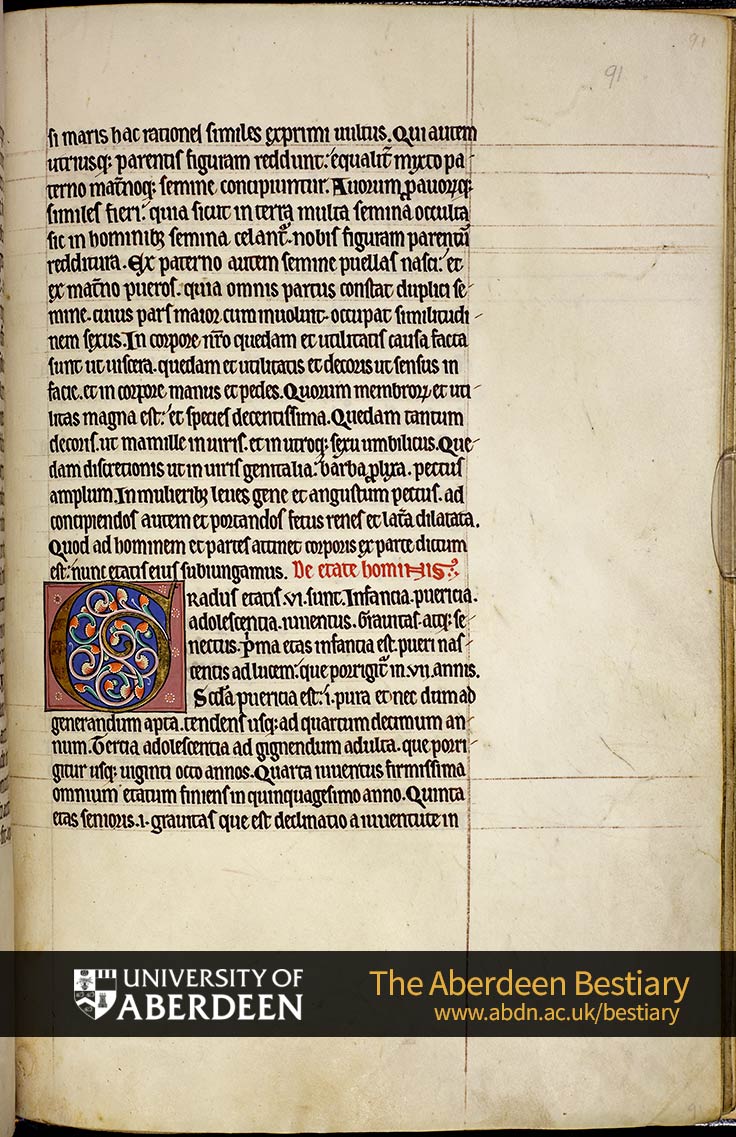 91
91
si maris hac rationel similes exprimi uultus. Qui autem
utriusq; parentis figuram reddunt: equalit̄ mixto pa-
terno mat̄noq; semine concipiuntur. Auorum ꝓauorꝝq;
similes fieri: quia sicut in terra multa semina occulta
sic in hominibꝫ semina celant᷑. nobis figuram parentū
redditura. Ex paterno autem semine puellas nasci: et
ex mat̄no pueros. quia omnis partus constat duplici se-
mine. cuius pars maior cum inuolunt occupat similitudi-
nem sexus. In corpore nr̄o quedam et utilitatis causa facta
sunt ut uiscera. quedam et utilitatis et decoris ut sensus in
facie. et in corpore manus et pedes. Quorum membroꝝ et uti-
litas magna est: et species decentissima. Quedam tantum
decoris. ut mamille in uiris. et in utroq; sexu umbilicus. Que-
dam discretionis ut in uiris genitalia: barba ꝓlixa. pectus
amplum. In mulieribꝫ leues gene et angustum pectus. ad
concipiendos autem et portandos fetus renes et lat̄a dilatata.
Quod ad hominem et partes attinet corporis ex parte dictum
est: nunc etatis eius subiungamus. De etate hominis.
Gradus etatis .vi. sunt. Infancia. puericia.
adolescentia. iuuentus. Grauitas. atq; se-
nectus. p̄ma etas infancia est. pueri nas-
centis ad lucem: que porrigit᷑ in .vii. annis.
Scd̄a puericia est: .i. pura et nec dum ad
generandum apta. tendens usq; ad quartum decimum an-
num. Tercia adolescentia ad gignendum adulta. que porri-
gitur usq; uiginti octo annos. Quarta iuuentus firmissima
omnium etatum finiens in quinquagesimo anno. Quinta
etas senioris .i. grauitas que est declinatio a iuuentute in
UNIVERSITY OF
ABERDEEN
The Aberdeen Bestiary
www.abdn.ac.uk/bestiary